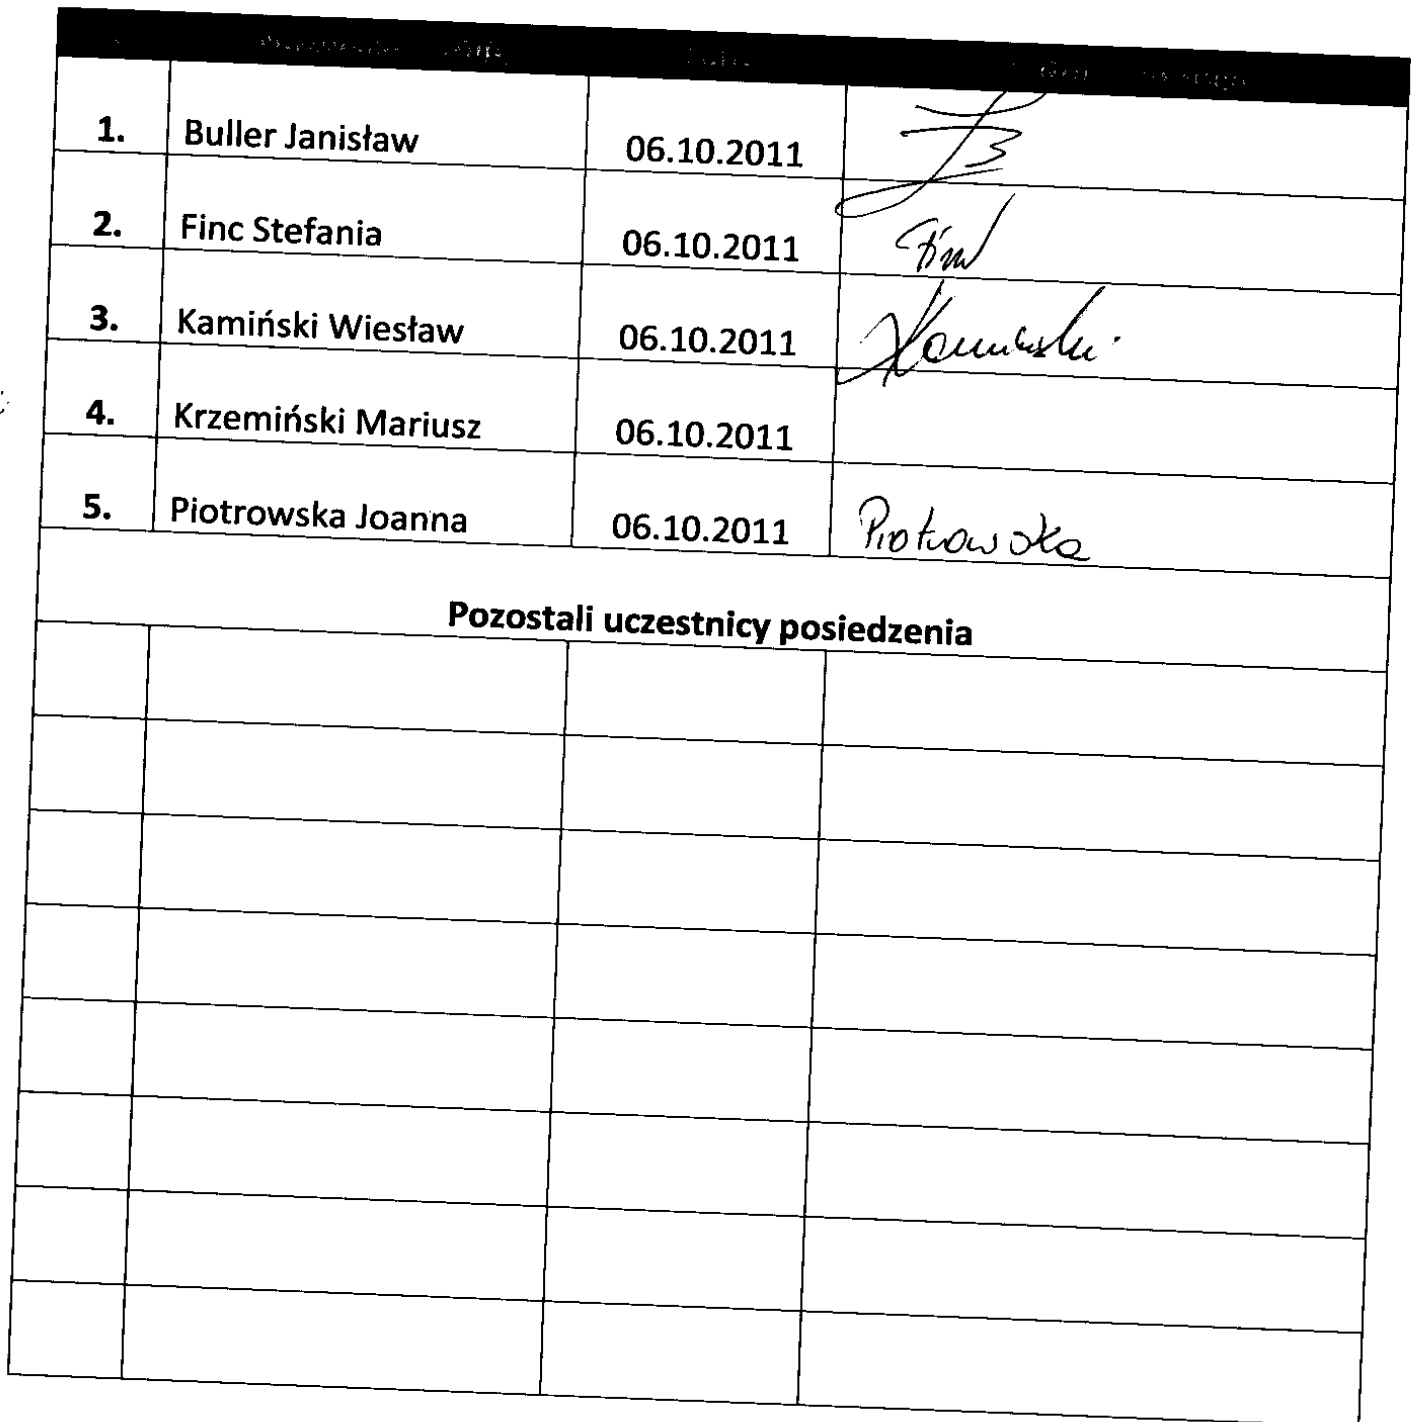 1. Buller Janisław 06.10.2011
2. Finc Stefania 06.10.2011
3. Kamiński Wiesław 06.10.2011 Kamiński
4. Krzemiński Mariusz 06.10.2011
5. Piotrowska Joanna 06.10.2011 Piotrowska
Pozostali uczestnicy posiedzenia